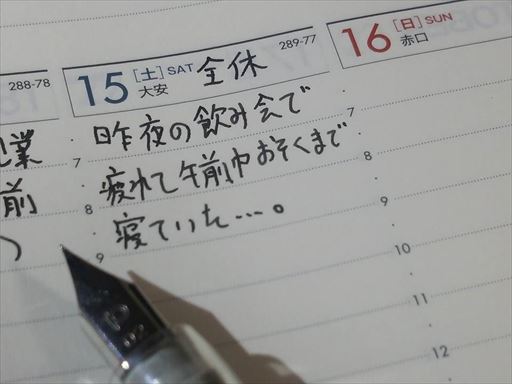 288-78
15 [土] SAT 全休 289-77
大安
16 [日] SUN
赤口
業
前
7 昨夜の飲み会で 7
8 疲れて午前中おそくまで 8
9 寝ていた…。 9
10
11
12